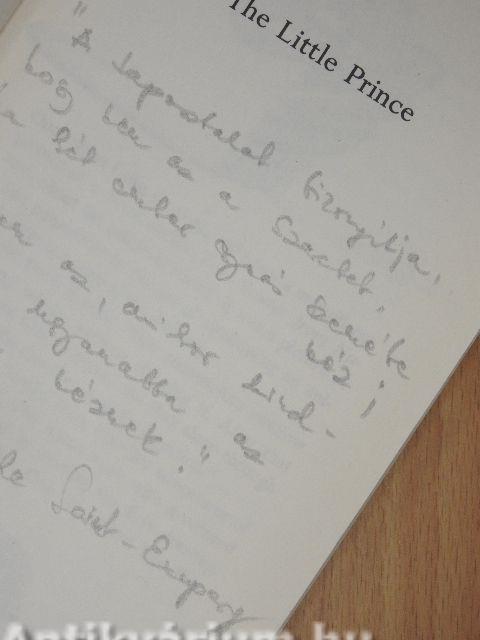 The Little Prince
"A tapasztalat bizonyítja,
hogy nem az a szeretet,
ha két ember egymás szemébe
néz;
az, amikor mind-
ugyanabba az
néznek."
de Saint-Exupery
Antikvárium.hu